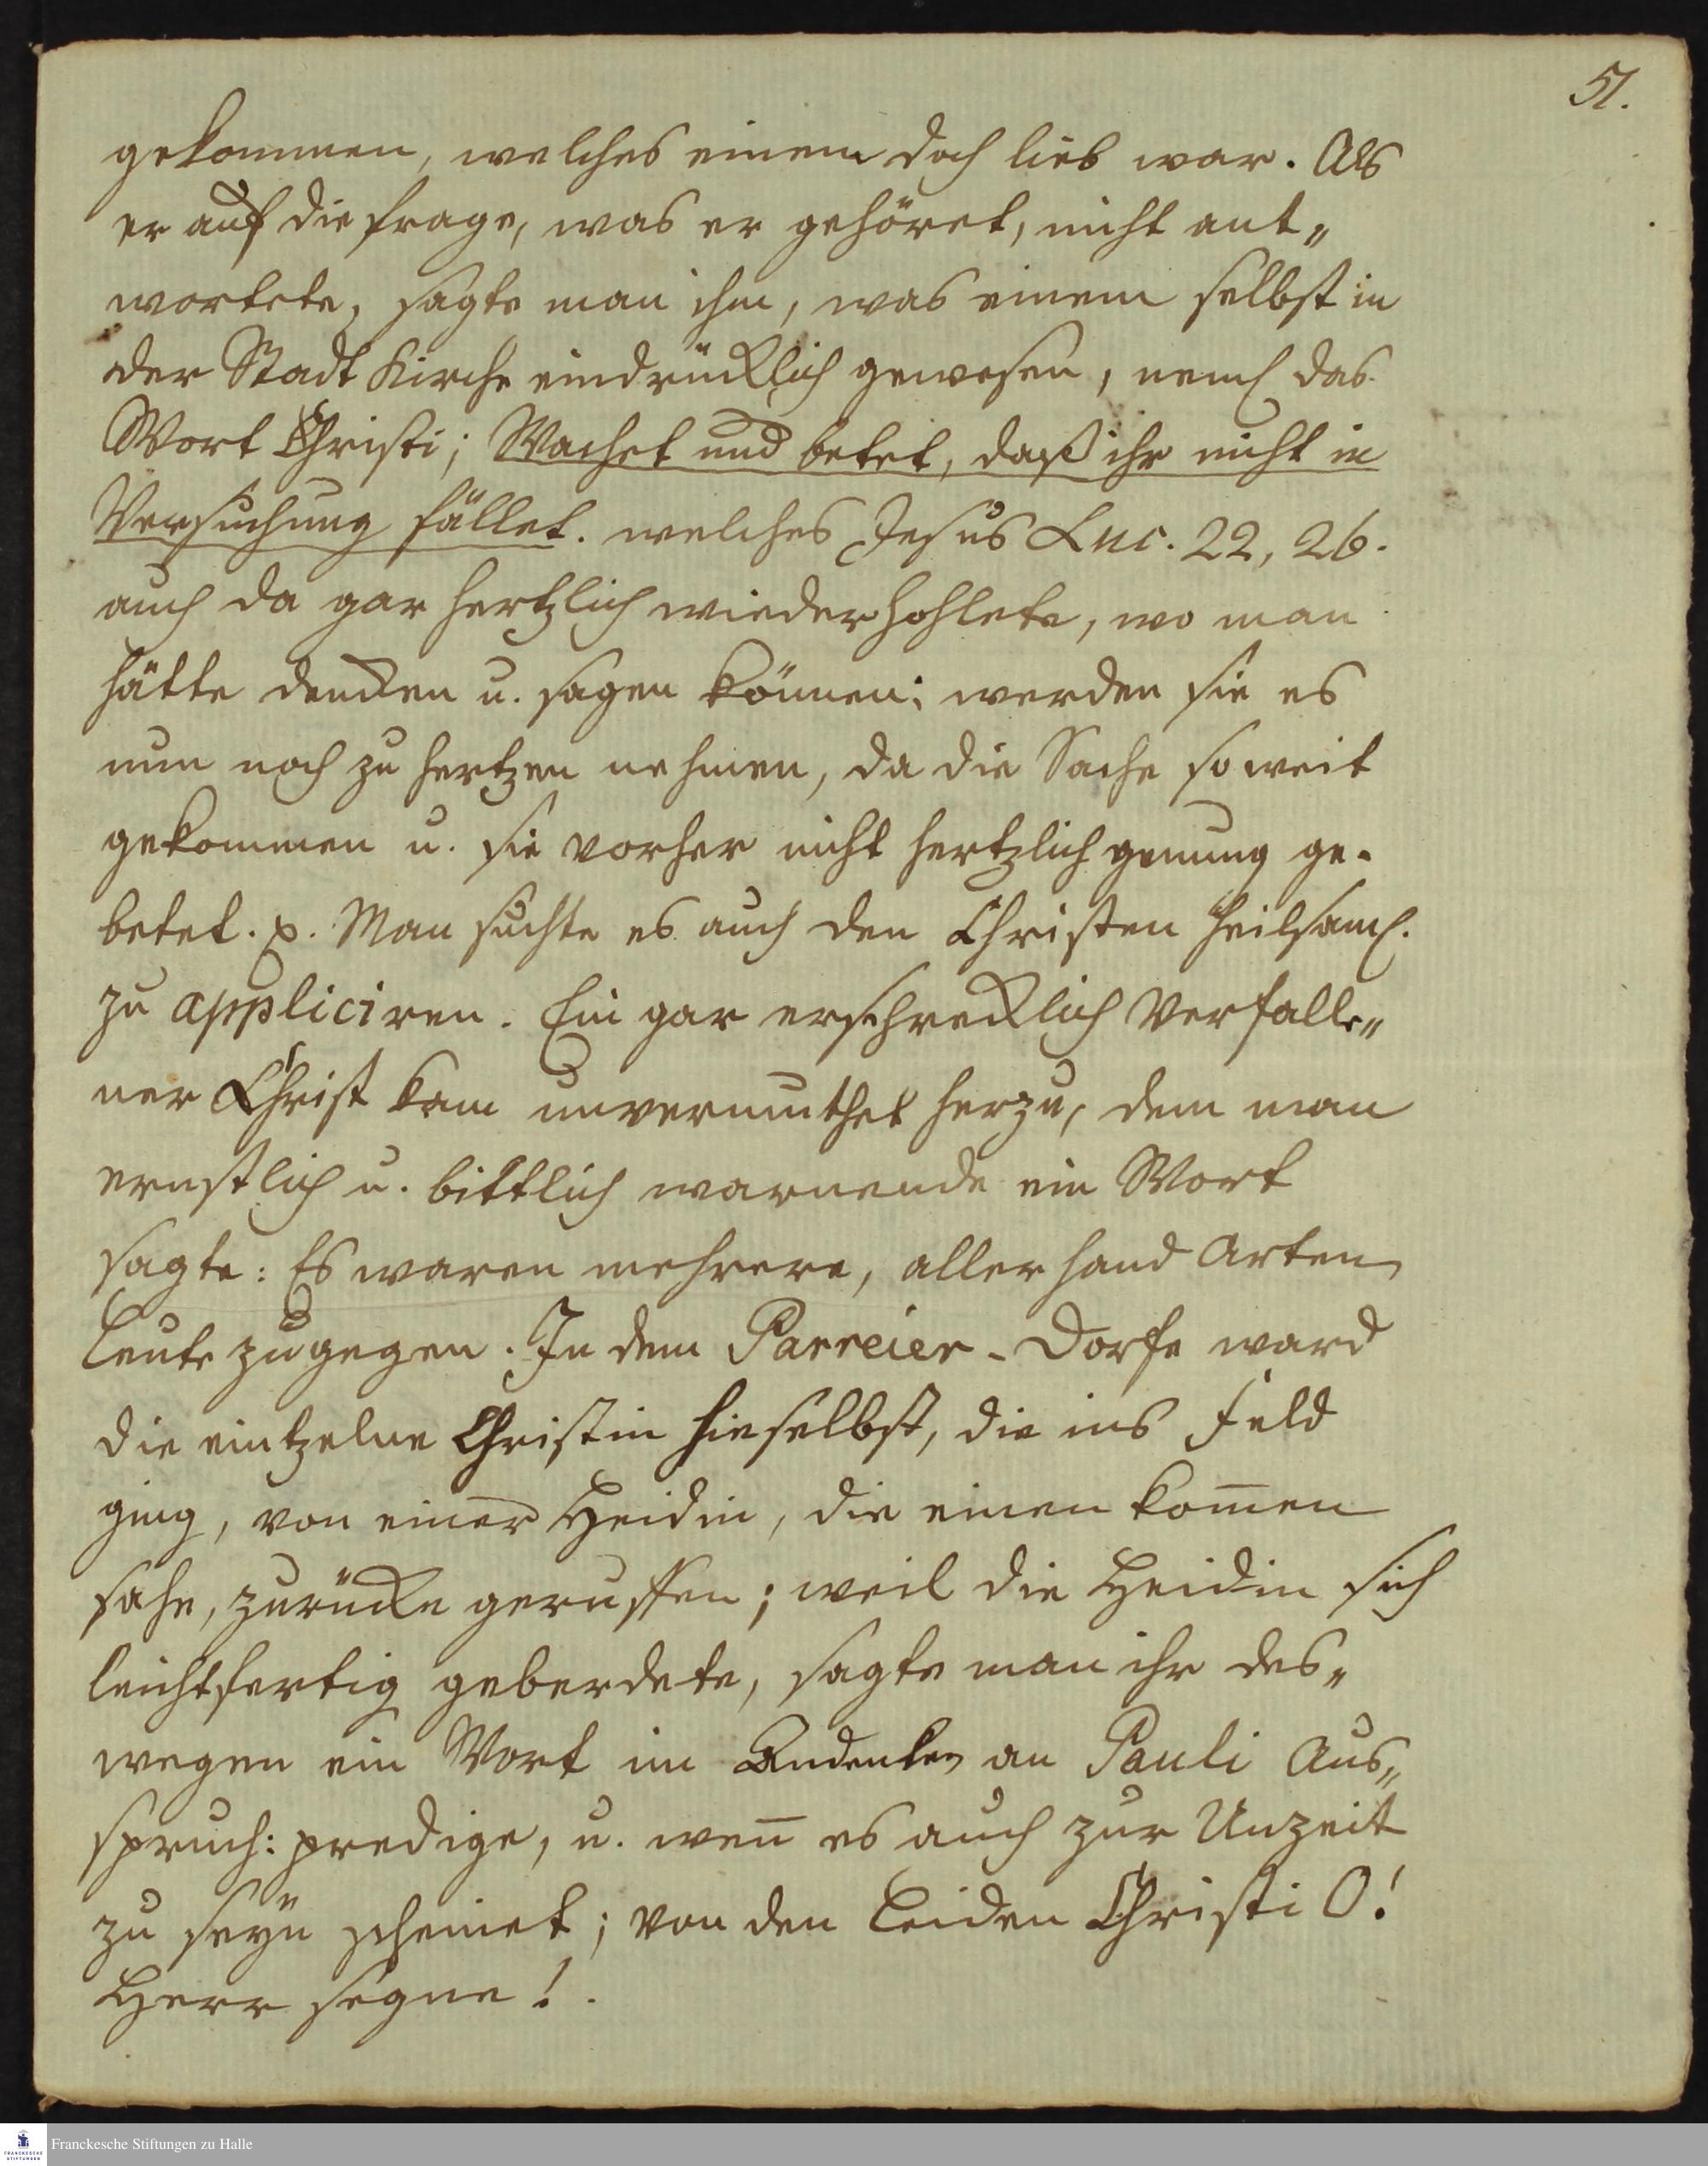 51.
gekommen, welches einem doch lieb war. Als
er auf die frage, was er gehöret, nicht ant„
wortete, sagte man ihm, was einem selbst in
der Stadt Kirche eindrücklich gewesen, neml das
Wort Christi; Wachet und betet, daß ihr nicht in
Versuchung fället. welches Jesus Luc. 22, 26.
auch da gar hertzlich wiederhohlete, wo man
hätte dencken u. sagen können: werden sie es
nun noch zu hertzen nehmen, da die Sache so weit
gekommen u. sie vorher nicht hertzlich genung ge-
betet. p. Man suchte es auch den Christen heilsaml.
zu appliciren. Ein gar erschrecklich Verfalle„
ner Christ kam unvermuthet herzu, dem man
ernstlich u. bittlich warnende ein Wort
sagte: Es waren mehrere, aller hand Arten
Leute zugegen. In dem Parreier-Dorfe ward
die eintzelne Christin hieselbst, die ins Feld
ging, von einer Heidin, die einen kom̅en
sahe, zurücke geruffen; weil die Heidin sich
leichtfertig geberdete, sagte man ihr des„
wegen ein Wort im Andenken an Pauli Aus„
spruch: predige, u. wen̅ es auch zur Unzeit
zu seÿn scheinet; von den Leiden Christi O!
Herr segne!.
Franckesche Stiftungen zu Halle
FRANCKESCHE
STIFTUNGEN